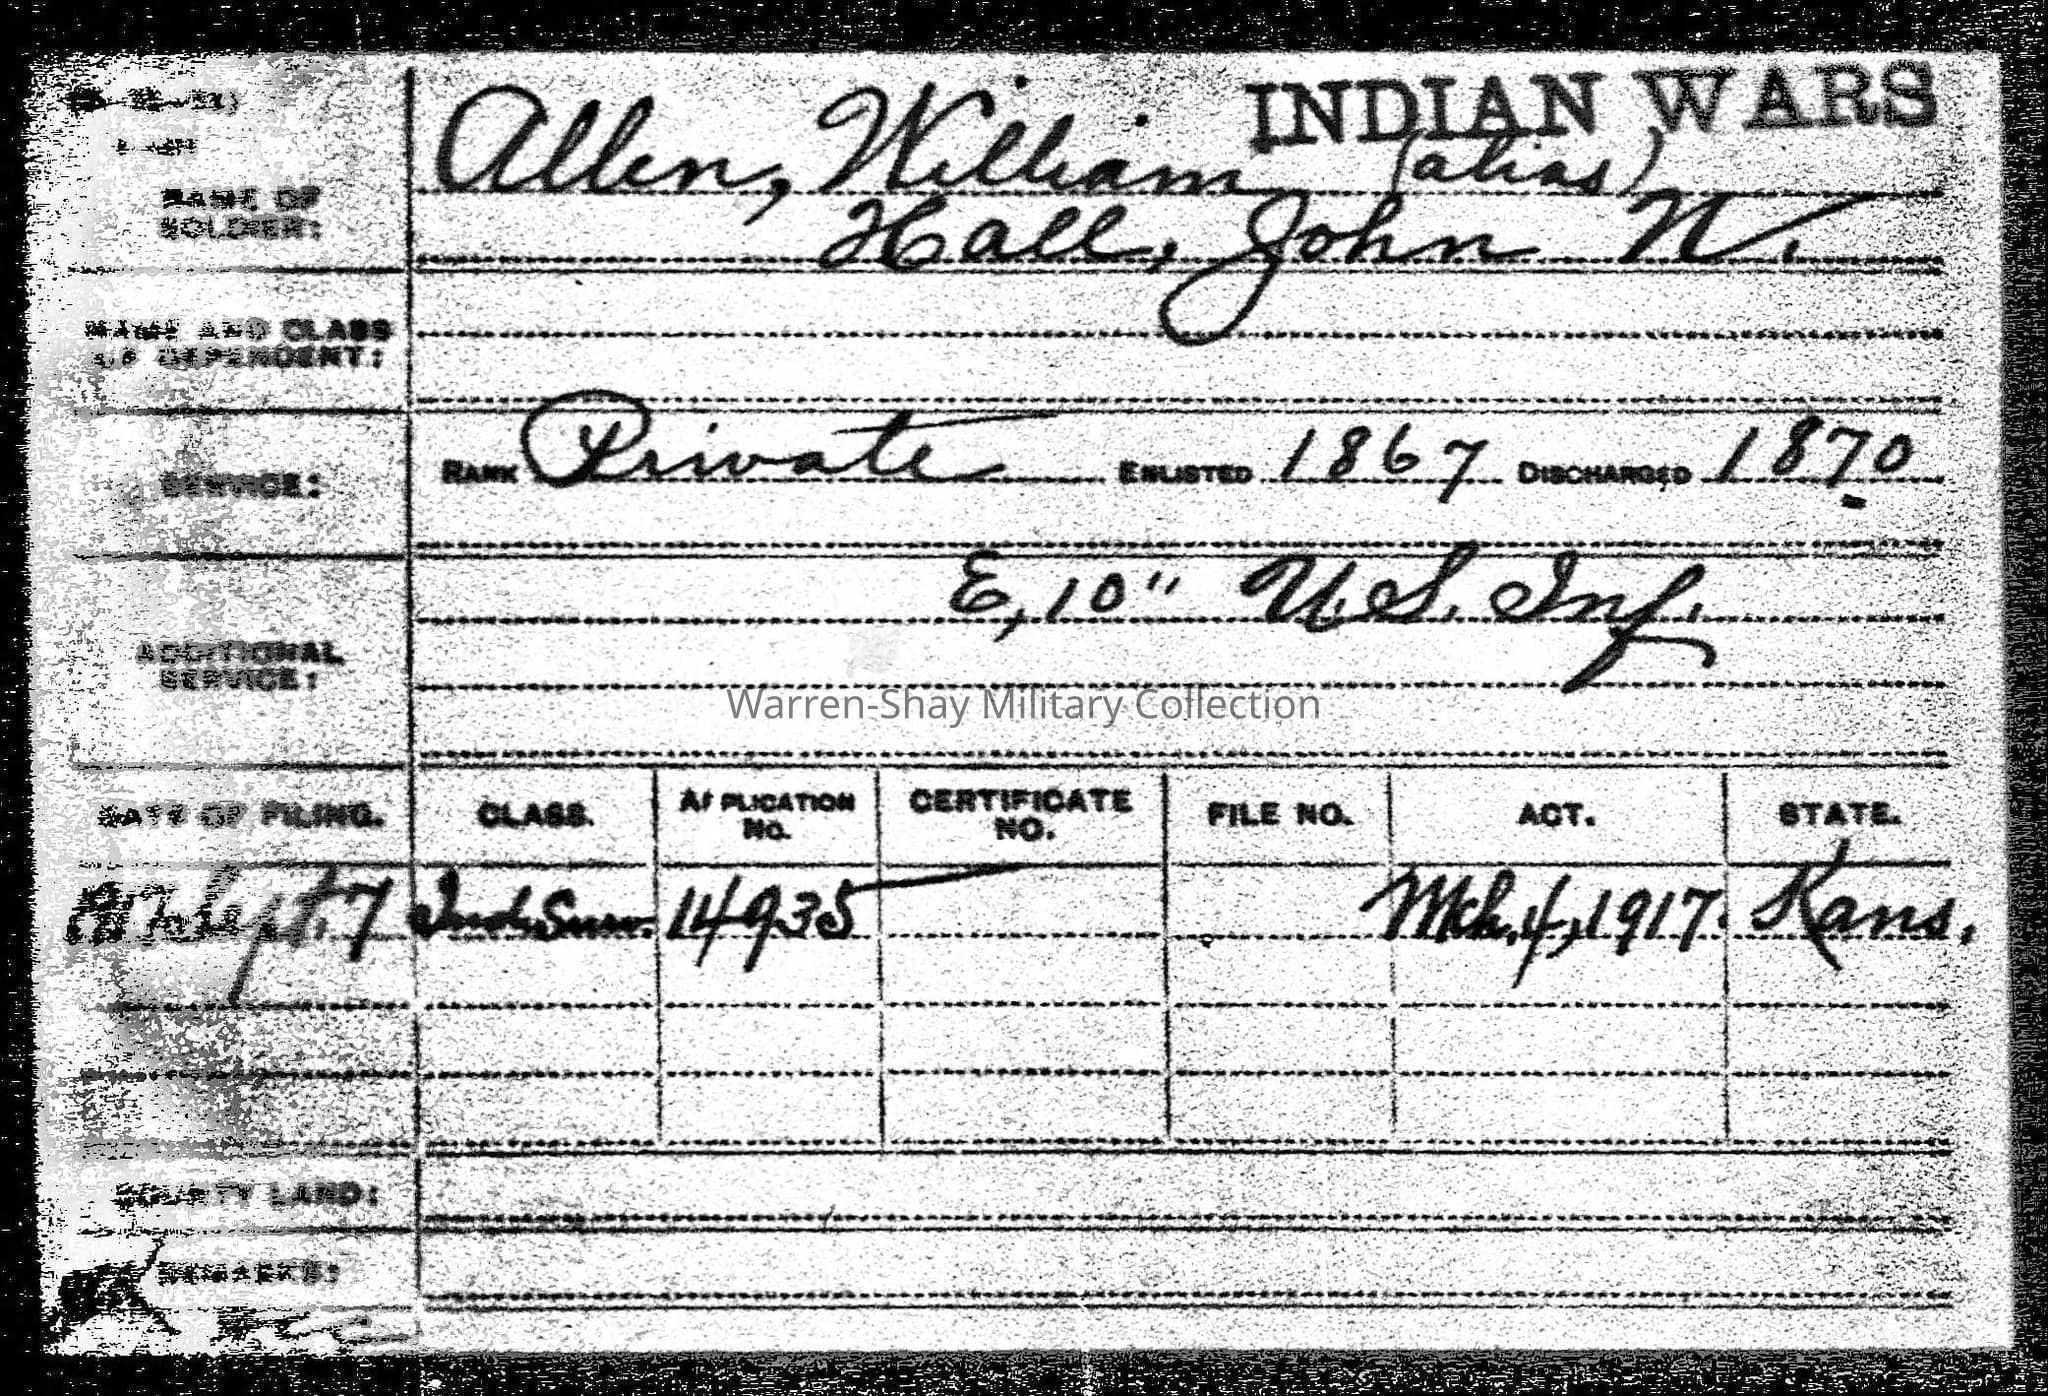 INDIAN WARS
Allen, William (alias)
NAME OF
SOLDIER:
Hall, John W.
NAME AND CLASS
OF DEPENDENT:
SERVICE: RANK Private ENLISTED 1867 DISCHARGED 1870
E, 10" U.S. Inf.
ADDITIONAL
SERVICE:
Warren-Shay Military Collection
DATE OF FILING. CLASS. APPLICATION NO. CERTIFICATE NO. FILE NO. ACT. STATE.
Ind. Surv. 14935 Mch. 4, 1917. Kans.
BOUNTY LAND:
REMARKS: